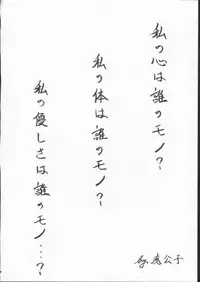 私の心は誰のモノ?
私の体は誰のモノ?
私の優しさは誰のモノ…?
by 恵公子